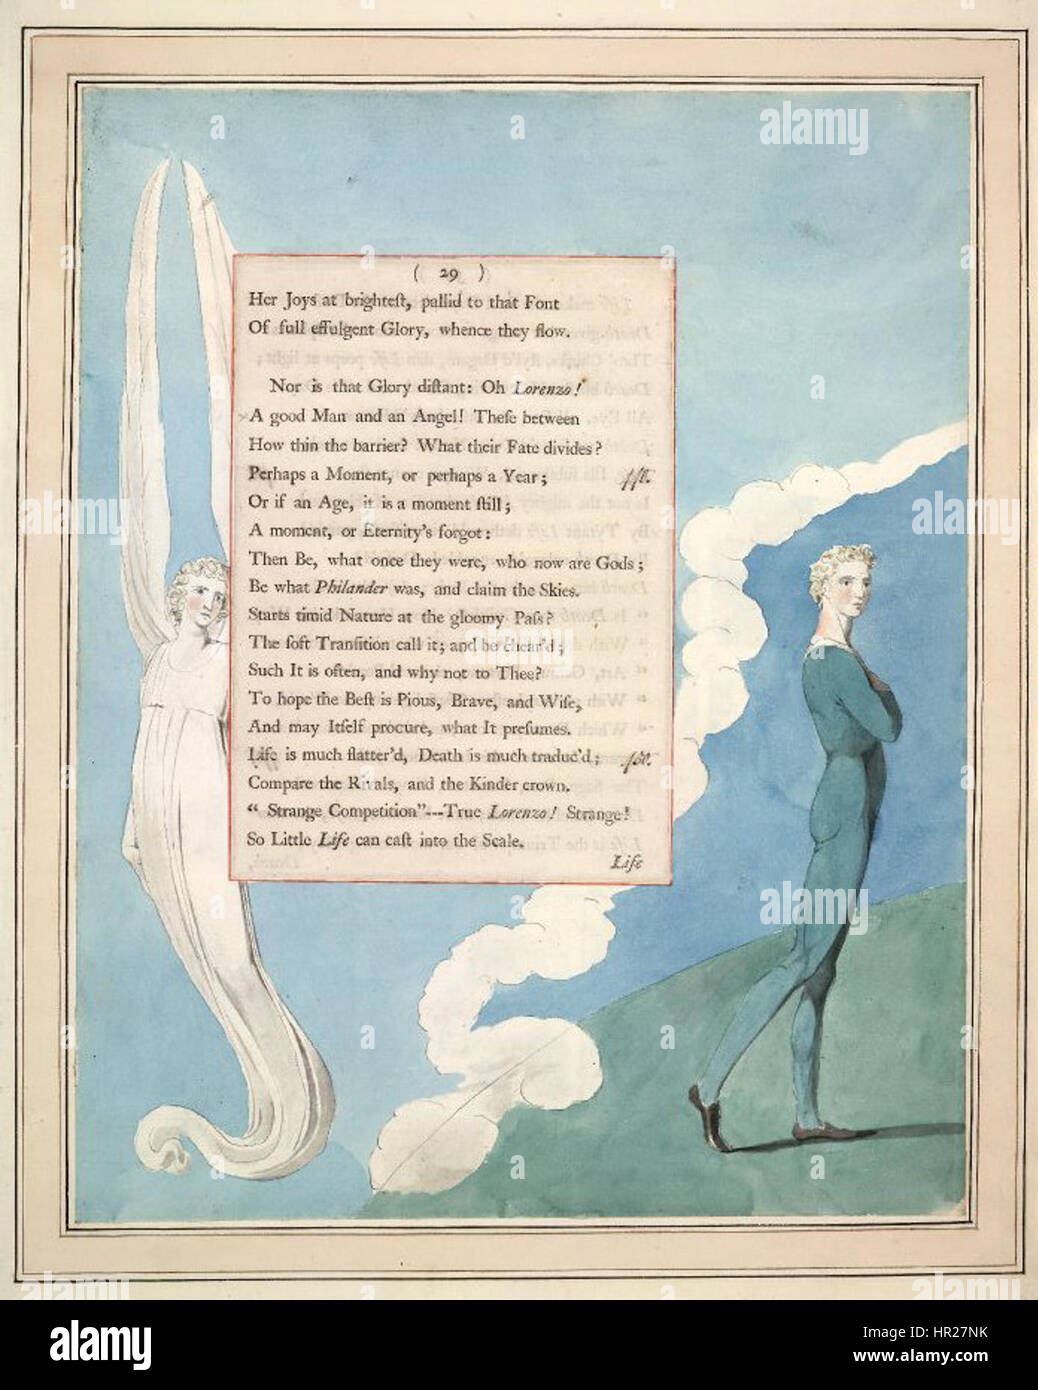 ( 29 )
Her Joys at brighteſt, pallid to that Font
Of full effulgent Glory, whence they flow.
Nor is that Glory diſtant: Oh Lorenzo!
A good Man and an Angel! Theſe between
How thin the barrier? What their Fate divides?
Perhaps a Moment, or perhaps a Year;
Or if an Age, it is a moment ſtill;
A moment, or Eternity's forgot:
Then Be, what once they were, who now are Gods;
Be what Philander was, and claim the Skies.
Starts timid Nature at the gloomy Paſs?
The ſoft Tranſition call it; and be chear'd;
Such It is often, and why not to Thee?
To hope the Beſt is Pious, Brave, and Wiſe,
And may Itſelf procure, what It preſumes.
Life is much flatter'd, Death is much traduc'd;
Compare the Rivals, and the Kinder crown.
“ Strange Competition”---True Lorenzo! Strange!
So Little Life can caſt into the Scale.
Life
alamy
alamy
alamy
alamy
alamy
a alamy stock photo
HR27NK
www.alamy.com